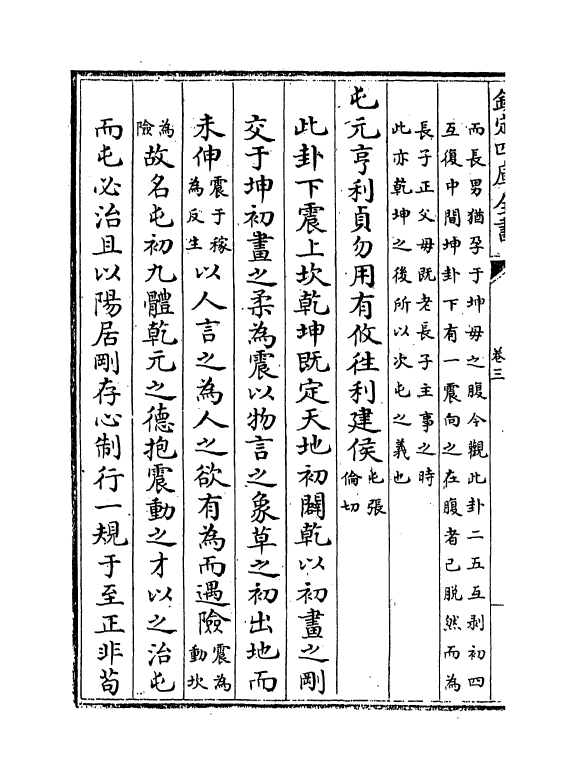 欽定四庫全書
卷三
而長男猶孕于坤母之腹今觀此卦二五互剥初四
互復中間坤卦下有一震向之在腹者已脱然而為
長子正父母既老長子主事之時
此亦乾坤之後所以次屯之義也
屯元亨利貞勿用有攸往利建侯屯張倫切
此卦下震上坎乾坤既定天地初闢乾以初畫之剛
交于坤初畫之柔為震以物言之象草之初出地而
未伸震于稼為反生以人言之為人之欲有為而遇險震為動坎
為險故名屯初九體乾元之德抱震動之才以之治屯
而屯必治且以陽居剛存心制行一規于至正非苟